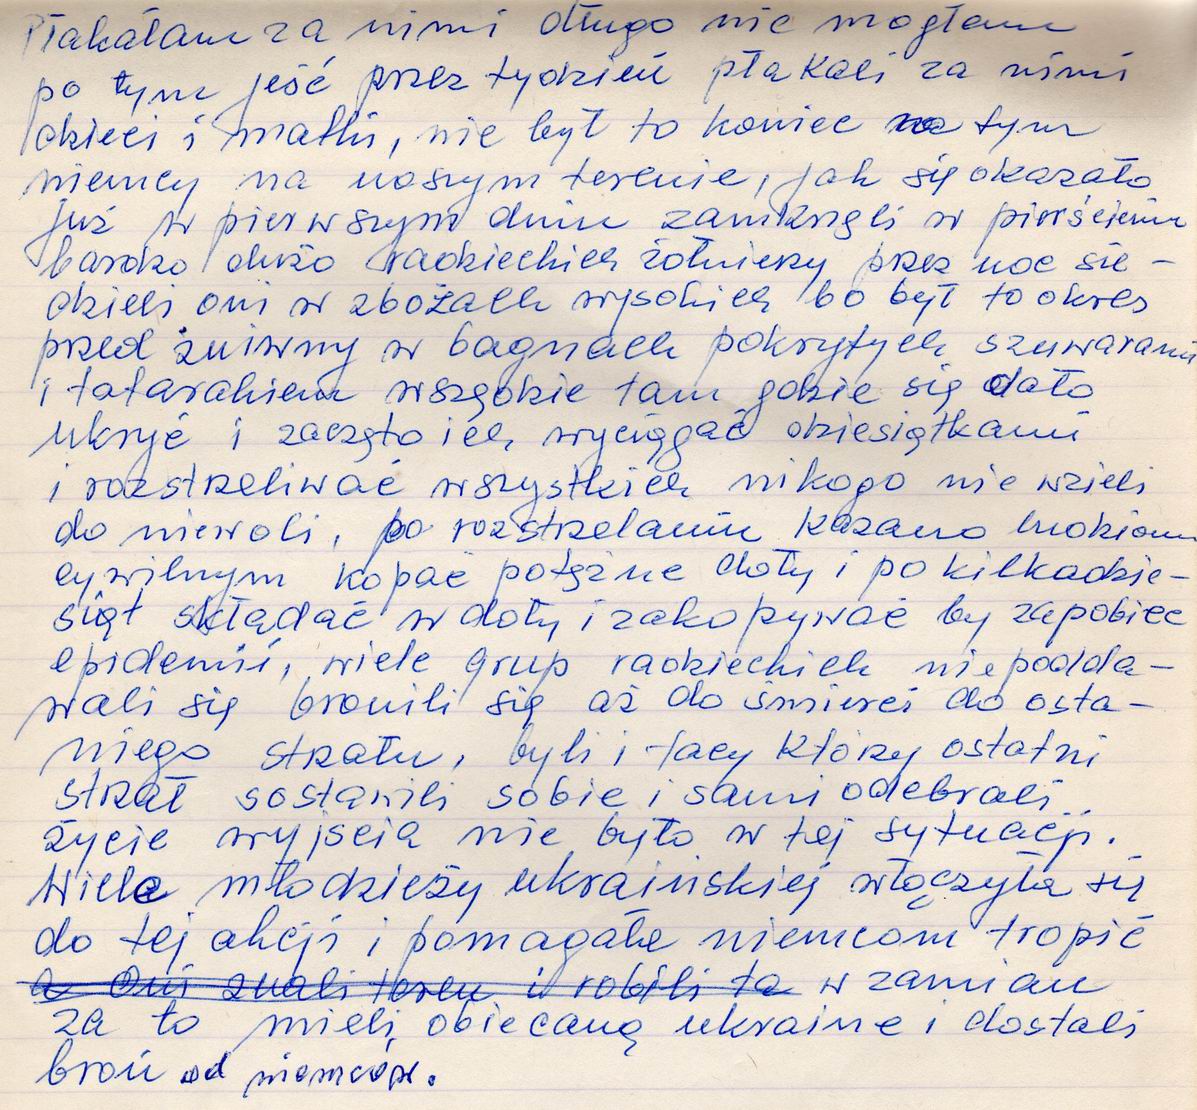 Płakałam za nimi długo nie mogłam
po tym jeść przez tydzień płakali za nimi
dzieci i matki, nie był to koniec na tym
niemcy na naszym terenie, jak się okazało
już w pierwszym dniu zamknęli w pierścieniu
bardzo dużo radzieckich żołnierzy przez noc sie-
dzieli oni w zbożach wysokich bo był to okres
przed żniwny w bagnach pokrytych szuwarami
i tatarakiem wszędzie tam gdzie się dało
ukryć i zaczęto ich wyciągać dziesiątkami
i rozstrzeliwać wszystkich nikogo nie wzieli
do niewoli, po rozstrzelaniu kazano ludziom
cywilnym kopać potężne doły i po kilkadzie-
siąt składać w doły i zakopywać by zapobiec
epidemii, wiele grup radzieckich nie podda-
wali się bronili się aż do śmierci do osta-
niego strzału, byli i tacy którzy ostatni
strzał zostawili sobie i sami odebrali
życie wyjscia nie było w tej sytuacji.
Wiele młodzieży ukraińskiej włączyła się
do tej akcji i pomagała niemcom tropić
a oni znali teren i robili to w zamian
za to mieli obiecaną ukraine i dostali
broń od niemców.